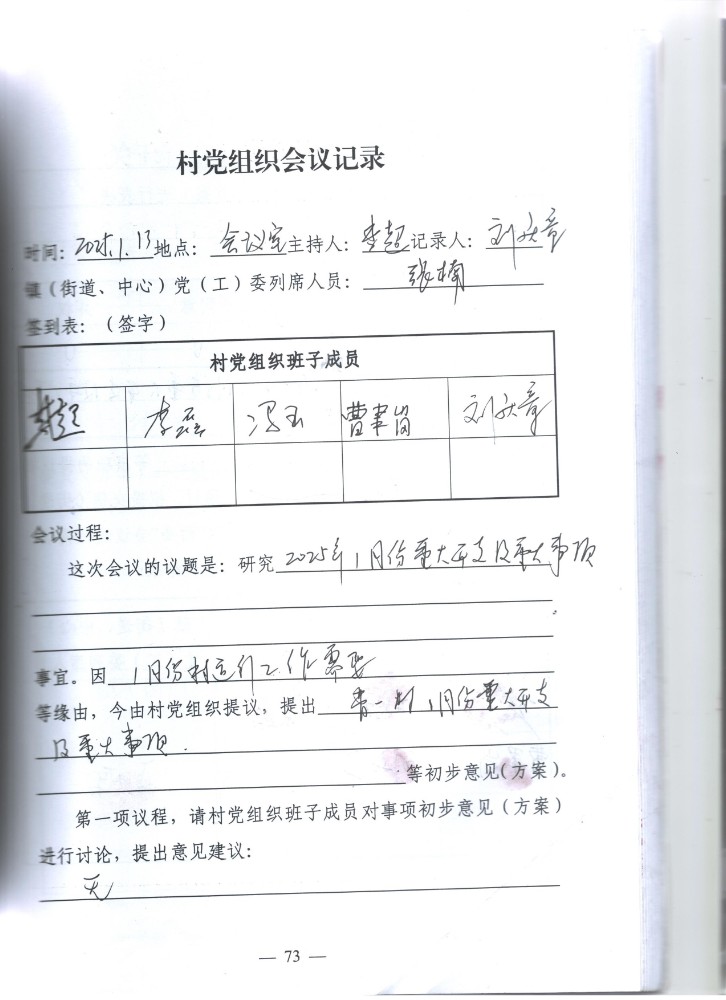 村党组织会议记录
时间：2025.1.13地点：会议室主持人：李超记录人：刘庆章
镇（街道、中心）党（工）委列席人员：张楠
签到表：（签字）
村党组织班子成员
李超 李磊 冯玉 曹聿岗 刘庆章
会议过程：
这次会议的议题是：研究2025年1月份重大开支及重大事项
事宜。因1月份村运行工作需要
等缘由，今由村党组织提议，提出青一村1月份重大开支
及重大事项.
等初步意见（方案）。
第一项议程，请村党组织班子成员对事项初步意见（方案）
进行讨论，提出意见建议：
无
— 73 —